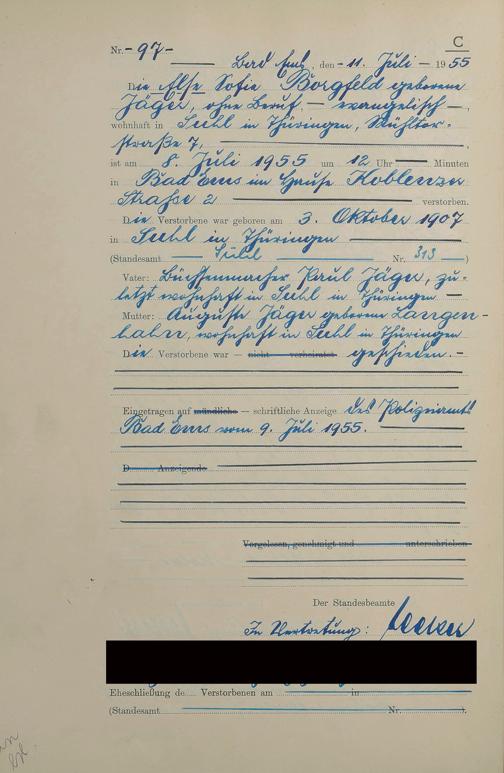 C
Nr. -97-
Bad Ems, den -11. Juli - 1955
Die Else Sofie Borgfeld geborene
Jäger, ohne Beruf, - evangelisch -,
wohnhaft in Suhl in Thüringen, Mühltor-
straße 7,
ist am 8. Juli 1955 um 12 Uhr Minuten
in Bad Ems im Hause Koblenzer
Straße 2 verstorben.
Die Verstorbene war geboren am 3. Oktober 1907
in Suhl in Thüringen
(Standesamt Suhl Nr. 313)
Vater: Büchsenmacher Paul Jäger, zu-
letzt wohnhaft in Suhl in Thüringen
Mutter: Auguste Jäger geborene Langen-
hahn, wohnhaft in Suhl in Thüringen
Die Verstorbene war - nicht - verheiratet geschieden.-
Eingetragen auf mündliche - schriftliche Anzeige des Polizeiamts
Bad Ems vom 9. Juli 1955.
D Anzeigende
Vorgelesen, genehmigt und unterschrieben
Der Standesbeamte
In Vertretung:
Eheschließung de Verstorbenen am in
(Standesamt Nr. ).